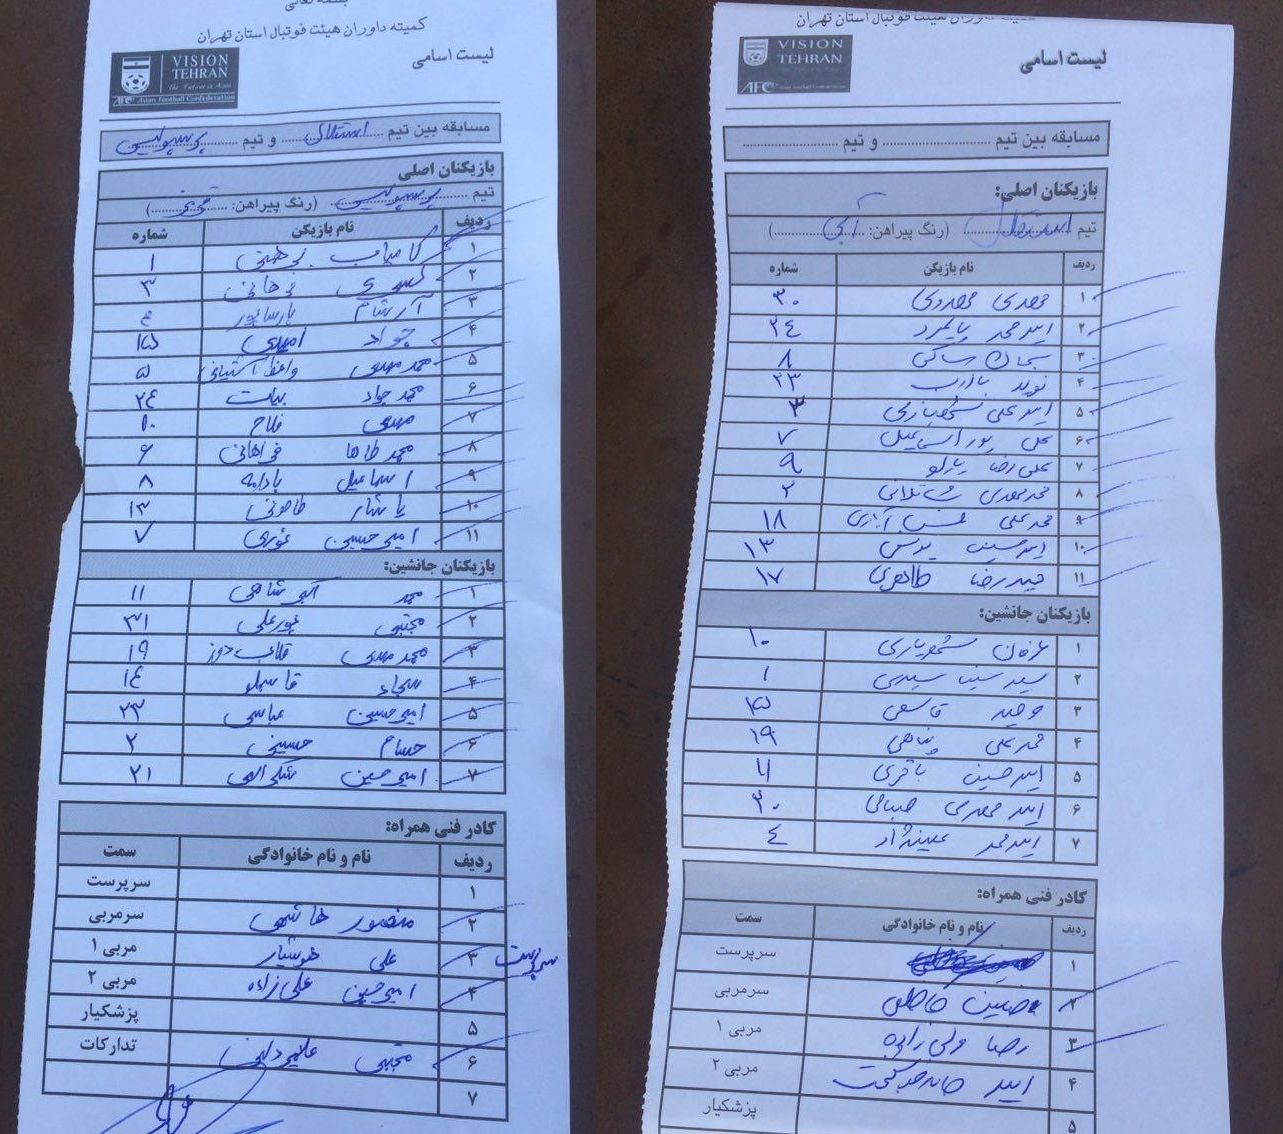 کمیته داوران هیئت فوتبال استان تهران
لیست اسامی
VISION
TEHRAN
The Future is Asia
AFC Asian Football Confederation
مسابقه بین تیم استقلال و تیم پرسپولیس
بازیکنان اصلی
تیم پرسپولیس (رنگ پیراهن: قرمز)
ردیف نام بازیکن شماره
۱ کامیاب ۱
۲ کسری برهانی ۳
۳ آرشام پارساپور ۴
۴ جواد امیدی ۱۵
۵ محمد مهدی واعظ آشتیانی ۵
۶ محمد جواد بیات ۲۴
۷ مهدی فلاح ۱۰
۸ محمد طاها فراهانی ۶
۹ اسماعیل بادامه ۸
۱۰ یاشار طاحونی ۱۳
۱۱ امیرحسین غوری ۷
بازیکنان جانشین:
۱ محمد اکبرشاهی ۱۱
۲ مجتبی پورعلی ۳۱
۳ محمد مهدی قلاب دوز ۱۹
۴ سجاد قاسملو ۱۴
۵ امیرحسین عباسی ۲۳
۶ حسام حسینی ۲
۷ امیرحسین شکرالهی ۲۱
کادر فنی همراه:
ردیف نام و نام خانوادگی سمت
۱ سرپرست
۲ منصور هاشمی سرمربی
سرپرست ۳ علی هوشیار مربی ۱
۴ امیرحسین علی‌زاده مربی ۲
۵ پزشکیار
۶ مجتبی تدارکات
۷
لیست اسامی
VISION
TEHRAN
The Future is Asia
AFC Asian Football Confederation
مسابقه بین تیم و تیم
بازیکنان اصلی:
تیم استقلال (رنگ پیراهن: آبی)
ردیف نام بازیکن شماره
۱ مهدی مهدوی ۳۰
۲ امیرمحمد پایمرد ۲۴
۳ سبحان ساکی ۸
۴ نوید ۲۳
۵ امیرعلی ۳
۶ علی پور اسماعیل ۷
۷ علی رضا یارلو ۹
۸ محمدمهدی ۲
۹ محمدعلی ۱۸
۱۰ امیرحسین یونسی ۱۳
۱۱ حمیدرضا طاهری ۱۷
بازیکنان جانشین:
۱ عرفان شهریاری ۱۰
۲ سید سینا سیدی ۱
۳ وحید قاسمی ۱۵
۴ محمدعلی پناهی ۱۹
۵ امیرحسین باقری ۲۱
۶ امیرمهدی صباحی ۲۰
۷ امیرمحمد ۴
کادر فنی همراه:
ردیف نام و نام خانوادگی سمت
۱ سرپرست
۲ سرمربی
۳ رضا ولی زاده مربی ۱
۴ امید مربی ۲
۵ پزشکیار